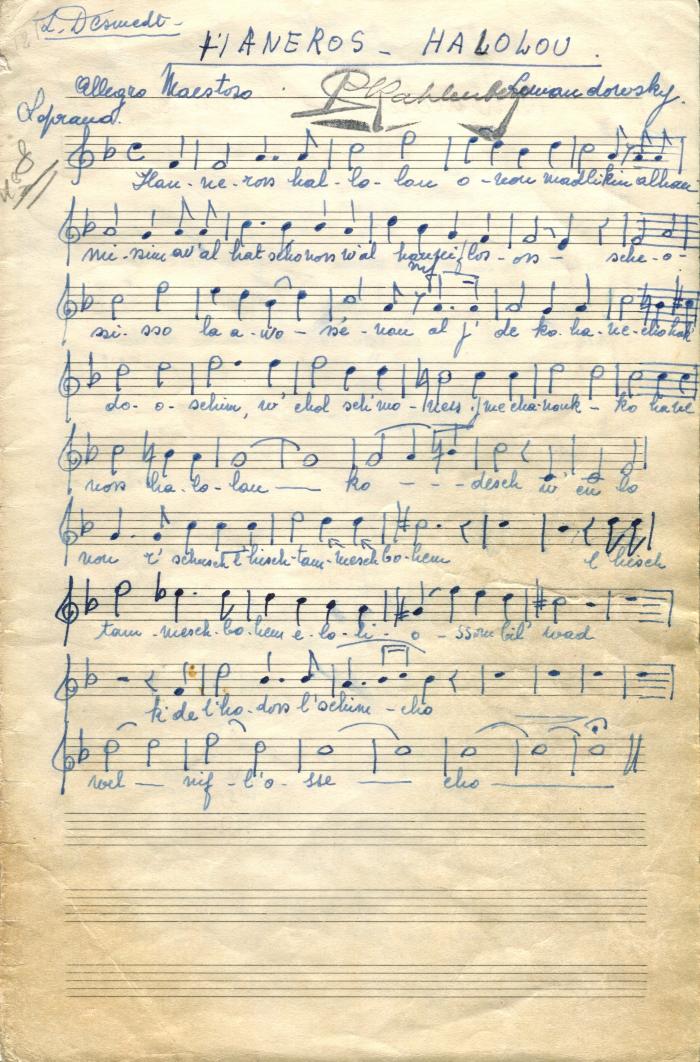 L. Desmedt
HANEROS - HALOLOU.
Allegro Maestoso Lewandowsky.
Soprano.
Han - ne - ross hal - lo - lou o - nou madlikin alhan
ni - ssim w'al hat schonoss w'al hamifloss - oss - sche - o -
mf
ssi - sso la a - wo - ssé - nou al j' de ko - ha - ne - cho hak
do - o - schim, w' chol sch'mo - ness j'me cha - nouk - ko hane
ross ha - lo - lou ko - - - desch w' en lo
nou r' schuss l'hisch - tam - mesch bo - hem l' hisch
tam - mesch - bo - hem e - lo - li - o - ssom bil' wad
k' de l'ho - doss l'schim - cho
wel nif - l'o - sse cho